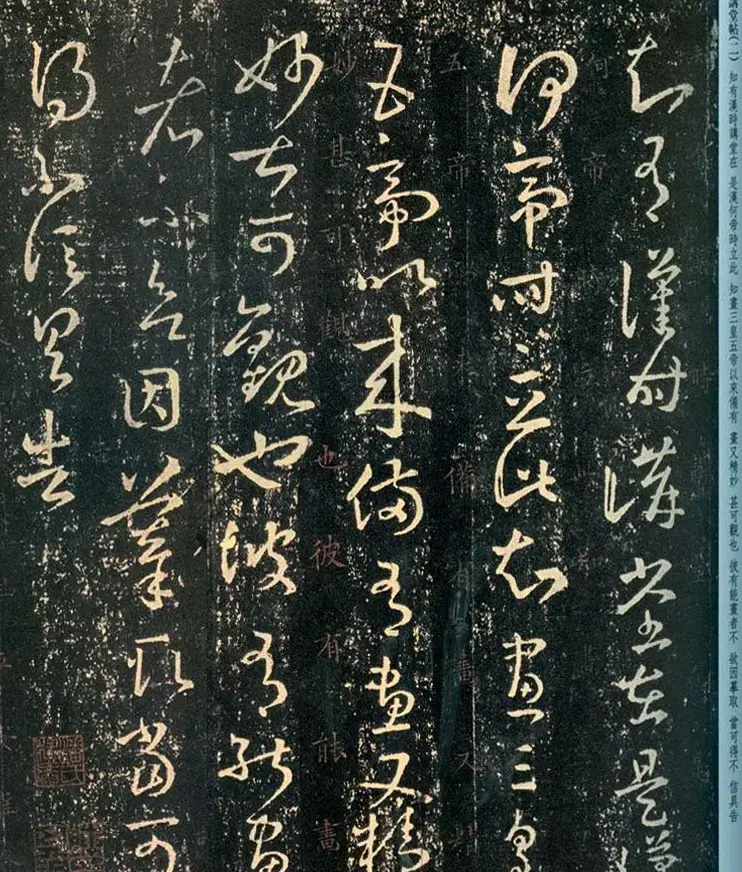 講堂帖(二) 知有漢時講堂在 是漢何帝時立此 知畫三皇五帝以來備有 畫又精妙 甚可觀也 彼有能畫者不 欲因摹取 當可得不 信具告
知有漢時講堂在是漢
何帝時立此知畫三皇
五帝以來備有畫又精
五帝備有畫又精
妙甚可觀也彼有能畫
妙甚可觀也彼有能畫
者不欲因摹取當可
得不信具告